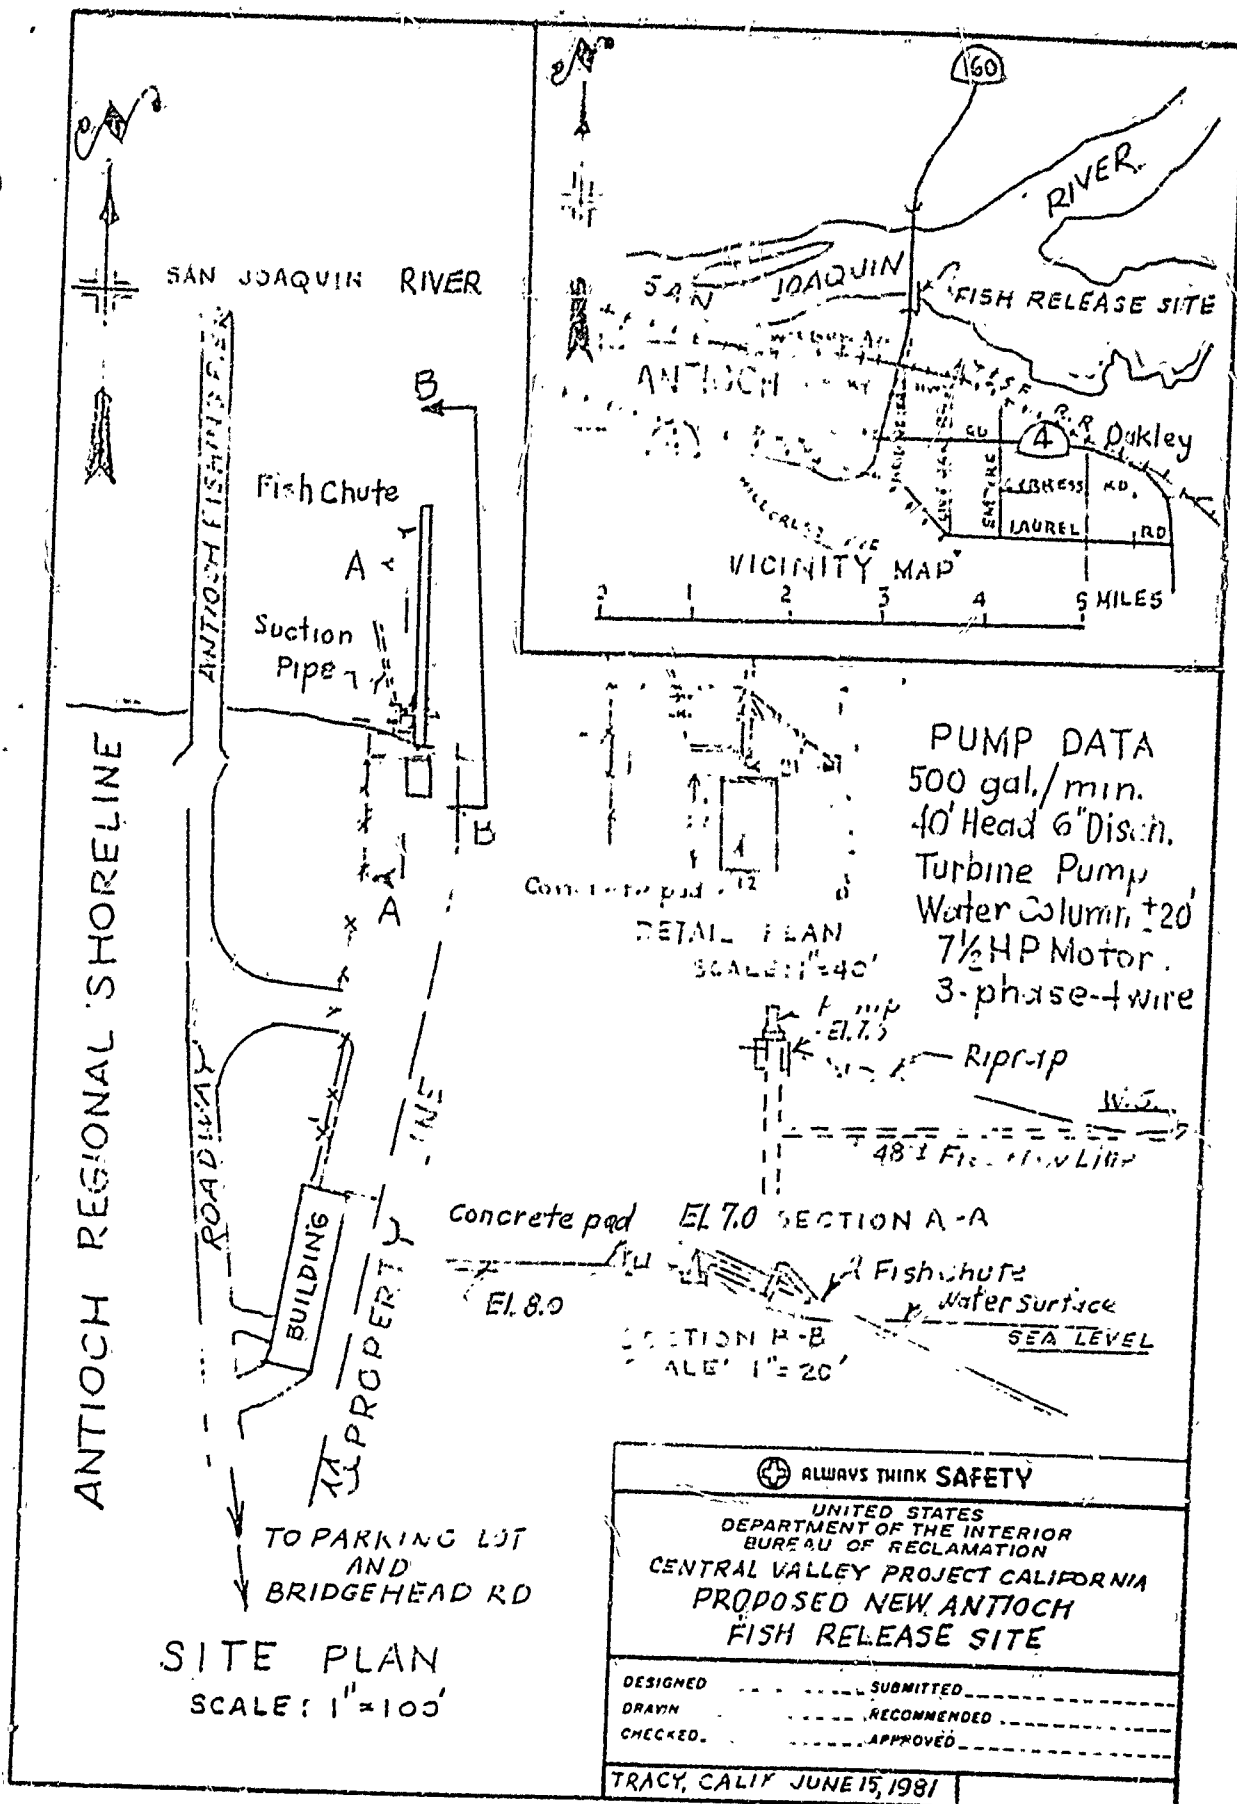 SAN JOAQUIN RIVER
ANTIOCH FISHING PIER
B
Fish Chute
A
Suction
Pipe
B
A
ANTIOCH REGIONAL SHORELINE
ROADWAY
BUILDING
PROPERTY LINE
TO PARKING LOT
AND
BRIDGEHEAD RD
SITE PLAN
SCALE: 1"=100'
160
RIVER
SAN JOAQUIN
FISH RELEASE SITE
ANTIOCH
4
Oakley
CYPRESS RD.
LAUREL RD
HILLCREST AVE
VICINITY MAP
0 1 2 3 4 5 MILES
Concrete pad 12
DETAIL PLAN
SCALE: 1"=40'
PUMP DATA
500 gal./min.
40' Head 6" Disch.
Turbine Pump
Water Column ±20'
7½ HP Motor.
3-phase-4 wire
Pump
El. 7.5
Riprap
W.S.
48'±
SECTION A-A
Concrete pad El. 7.0
El. 8.0
Fish chute
Water Surface
SEA LEVEL
SECTION B-B
SCALE: 1"=20'
ALWAYS THINK SAFETY
UNITED STATES
DEPARTMENT OF THE INTERIOR
BUREAU OF RECLAMATION
CENTRAL VALLEY PROJECT CALIFORNIA
PROPOSED NEW ANTIOCH
FISH RELEASE SITE
DESIGNED SUBMITTED
DRAWN RECOMMENDED
CHECKED. APPROVED
TRACY, CALIF JUNE 15, 1981